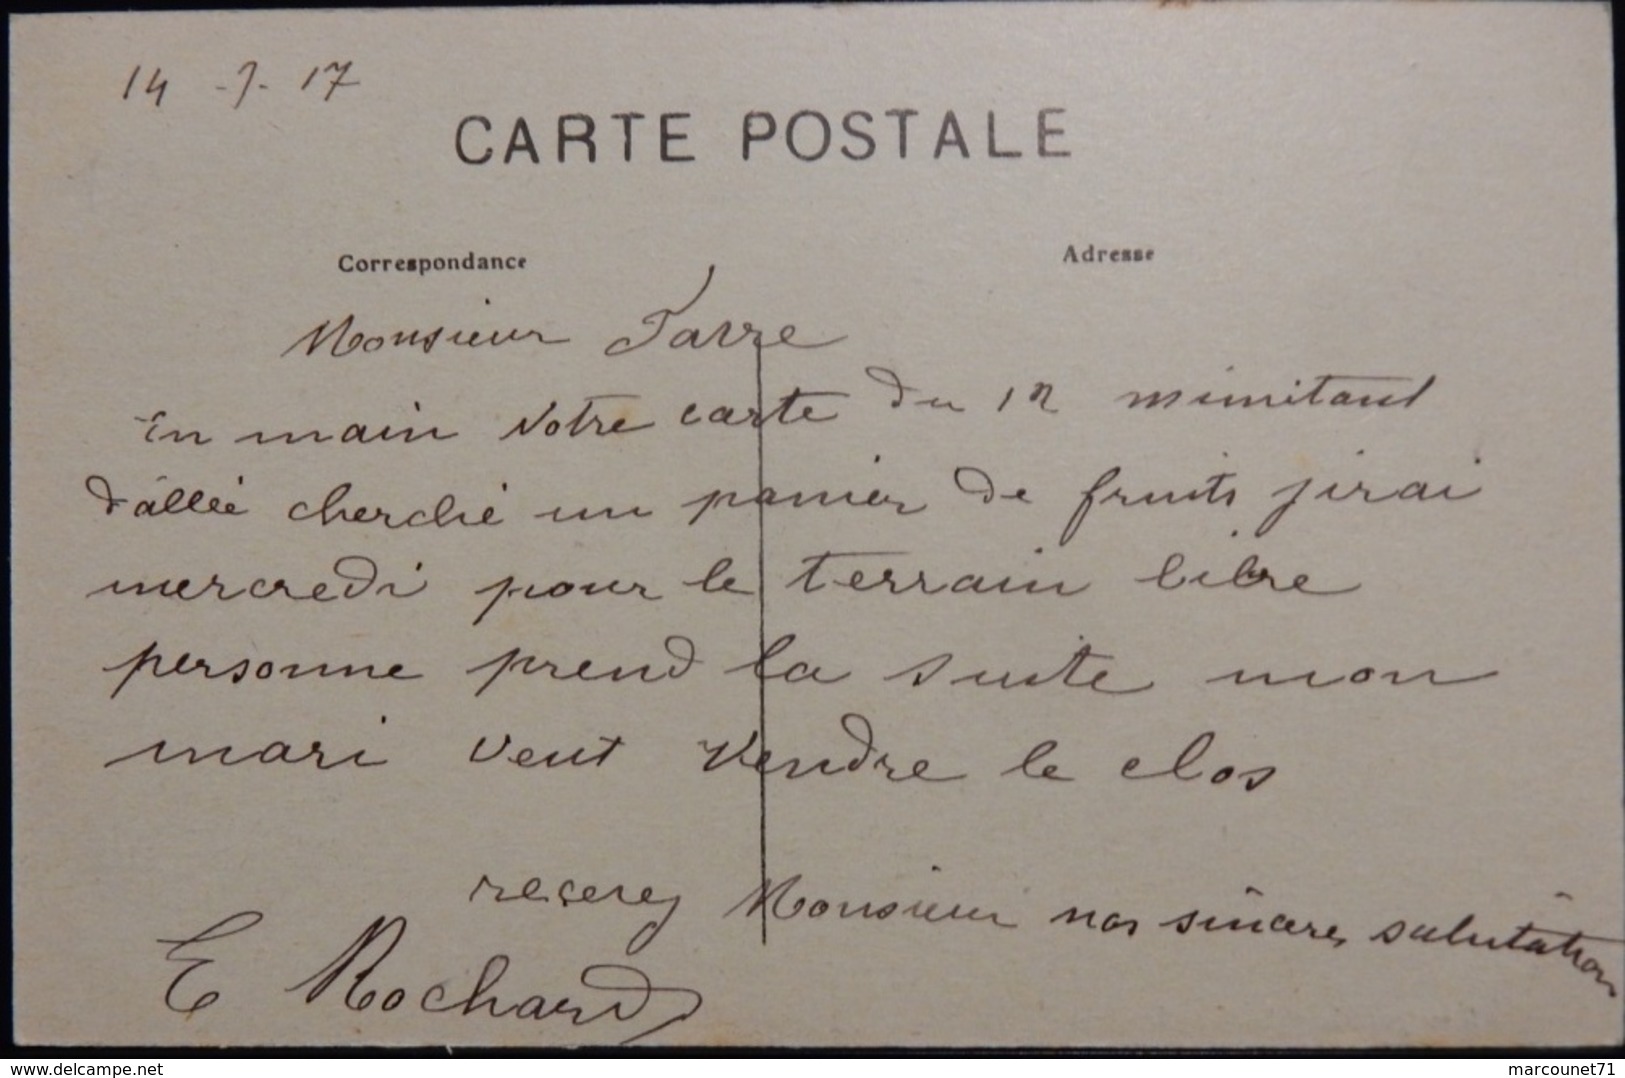 14 - 7 - 17
CARTE POSTALE
Correspondance
Adresse
Monsieur Favre
En main votre carte du 12 minvitant
d'allée cherché un panier de fruits jirai
mercredi pour le terrain libre
personne prend la suite mon
mari veut vendre le clos
recevez Monsieur nos sincères salutation
E Rochard
delcampe.net
marcounet71